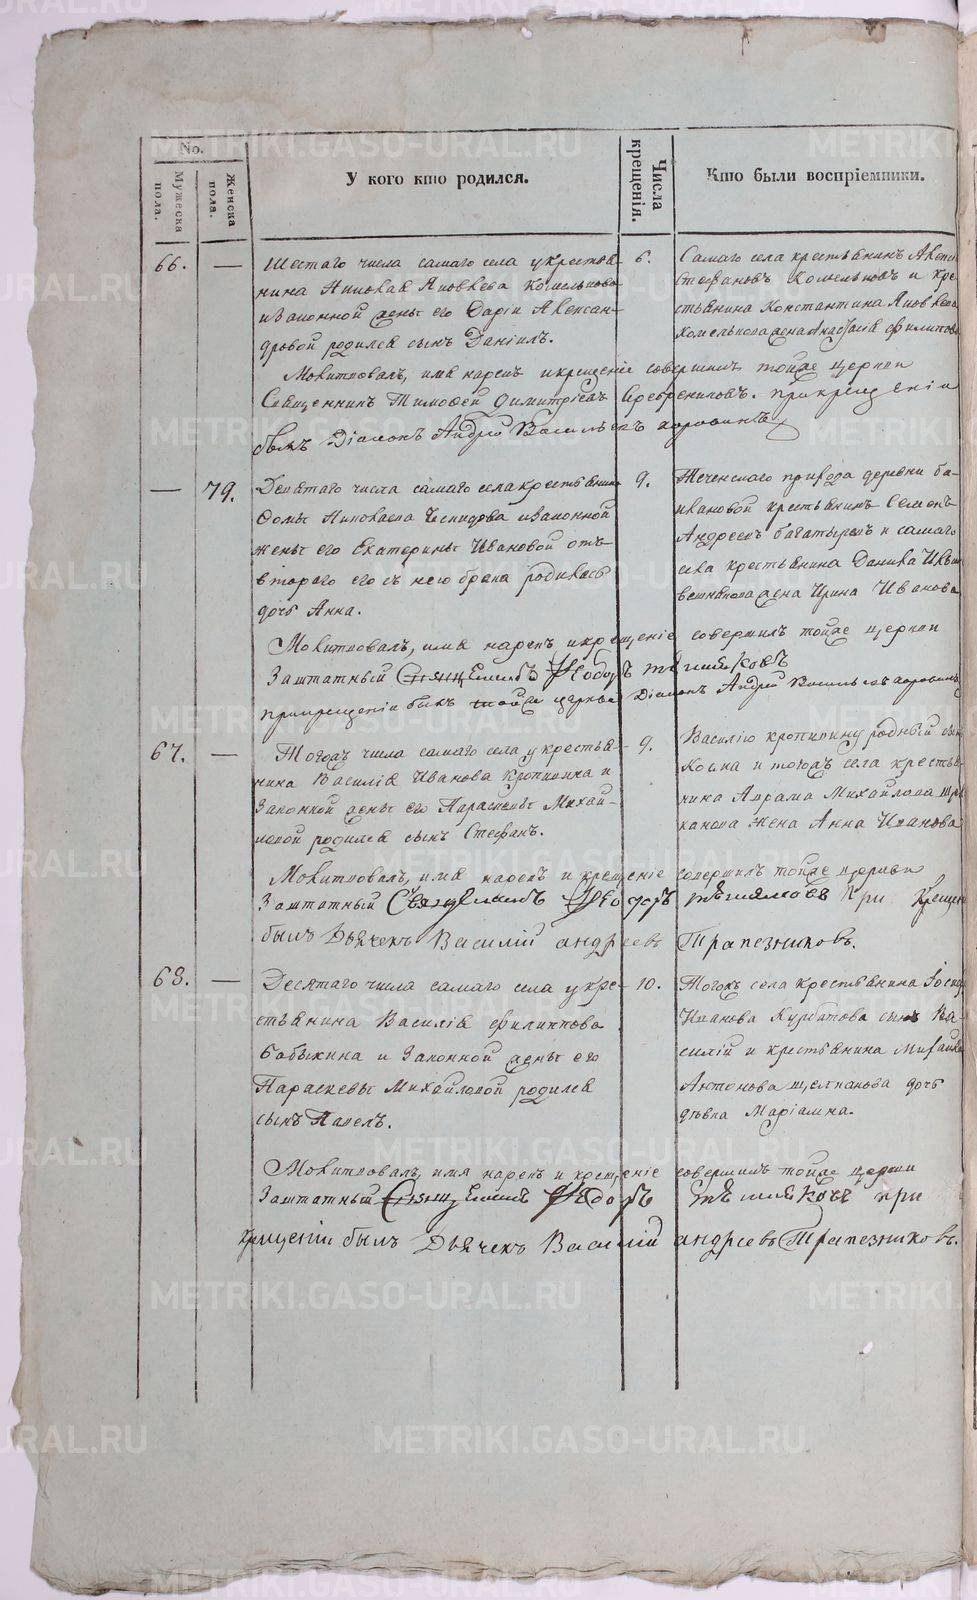 No.
Мужеска пола.
Женска пола.
У кого кто родился.
Числа крещенія.
Кто были воспріемники.
66. —
Шестаго числа самаго села у крестья-
нина Николая Яковлева Комелькова
и Законной жены его Дарьи Алексан-
дровой родился сынъ Даніилъ.
6.
Самаго села крестьянинъ
Стефановъ и кре-
стьянина Константина Яковлева
жена Филипова
Молитвовалъ, имя нарекъ и крещеніе совершилъ тойже церкви
Священникъ Тимофей Димитріевъ Серебрениковъ. при крещеніи
былъ Діаконъ Андрей Васильевъ
— 79.
Девятаго числа самаго села крестьянина
Фомы Николаева и Законной
жены его Екатерины Ивановой отъ
втораго его съ нею брака родилась
дочь Анна.
9.
Теченскаго прихода деревни
крестьянинъ Семенъ
Андреевъ Богатыревъ и самаго
села крестьянина Данила
жена Ирина Иванова
Молитвовалъ, имя нарекъ и крещеніе совершилъ тойже церкви
Заштатный Священникъ Феодоръ
при крещеніи былъ тойже церкви Діаконъ Андрей Васильевъ
67. —
Тогожъ числа самаго села у крестья-
нина Василія Иванова Кропинина и
Законной жены его Параскевы Михай-
ловой родился сынъ Стефанъ.
9.
Василію Кропинину родный
Козма и тогожъ села крестья-
нина Аврама Михайлова
жена Анна Иванова
Молитвовалъ, имя нарекъ и крещеніе совершилъ тойже церкви
Заштатный Священникъ Феодоръ При крещеніи
былъ Дьячекъ Василій андреевъ Трапезниковъ.
68. —
Десятаго числа самаго села у кре-
стьянина Василія Филиппова
Бабыкина и Законной жены его
Параскевы Михайловой родился
сынъ Павелъ.
10.
Тогожъ села крестьянина
Иванова Курбатова сынъ Ва-
силій и крестьянина Михаила
Антонова дочь
дѣвка Маріамна.
Молитвовалъ, имя нарекъ и крещеніе совершилъ тойже церкви
Заштатный Священникъ Феодоръ при
крещеніи былъ Дьячекъ Василій андреевъ Трапезниковъ.
METRIKI.GASO-URAL.RU